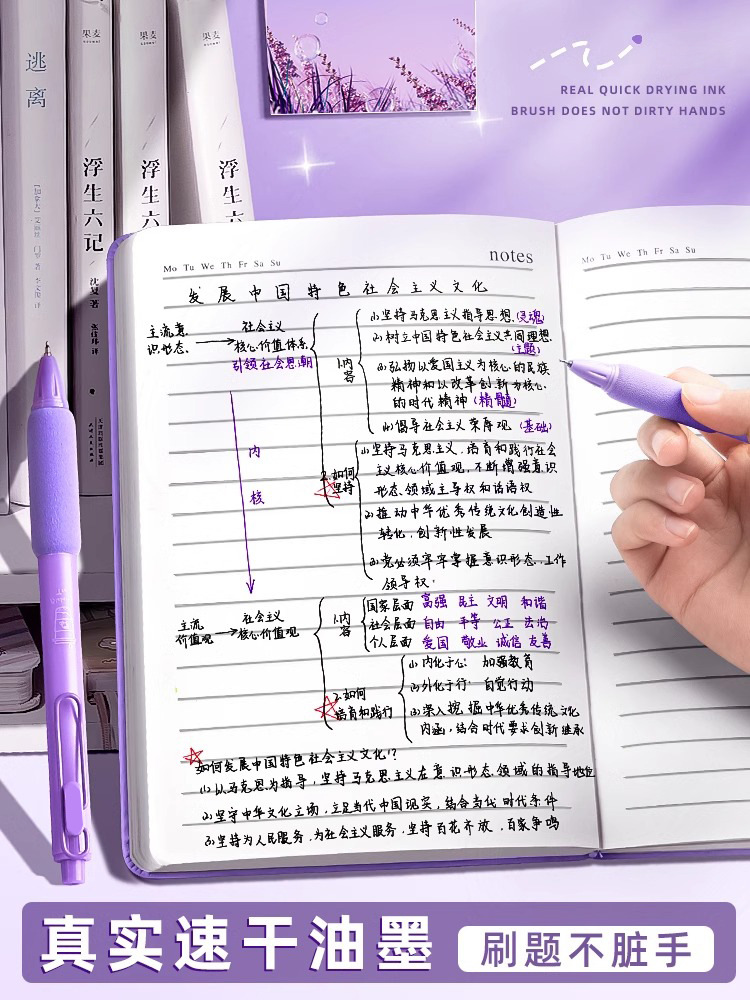 果麦
果麦
果麦
逃离
浮生六记
浮生六
浮生六
沈复 著
张佳玮 译
REAL QUICK DRYING INK
BRUSH DOES NOT DIRTY HANDS
Mo Tu We Th Fr Sa Su
notes
Mo Tu We Th Fr Sa Su
发展中国特色社会主义文化
主流意识形态
社会主义核心价值体系
引领社会思潮
1.内容
(1)坚持马克思主义指导思想.(灵魂)
(2)树立中国特色社会主义共同理想.
(主题)
(3)弘扬以爱国主义为核心的民族
精神和以改革创新为核心
的时代精神(精髓)
(4)倡导社会主义荣辱观(基础)
2.如何坚持
(1)坚持马克思主义、培育和践行社会
主义核心价值观,不断增强意识
形态领域主导权和话语权
(2)推动中华优秀传统文化创造性
转化,创新性发展
(3)党必须牢牢掌握意识形态工作
领导权.
内核
主流价值观
社会主义核心价值观
1.内容
国家层面 富强 民主 文明 和谐
社会层面 自由 平等 公正 法治
个人层面 爱国 敬业 诚信 友善
2.如何培育和践行
(1)内化于心: 加强教育
(2)外化于行: 自觉行动
(3)深入挖掘中华优秀传统文化
内涵,结合时代要求创新继承
如何发展中国特色社会主义文化!?
(1)以马克思为指导,坚持马克思主义在意识形态领域的指导地位
(2)坚守中华文化立场,立足当代中国现实,结合当代时代条件
(3)坚持为人民服务,为社会主义服务,坚持百花齐放,百家争鸣
真实速干油墨
刷题不脏手